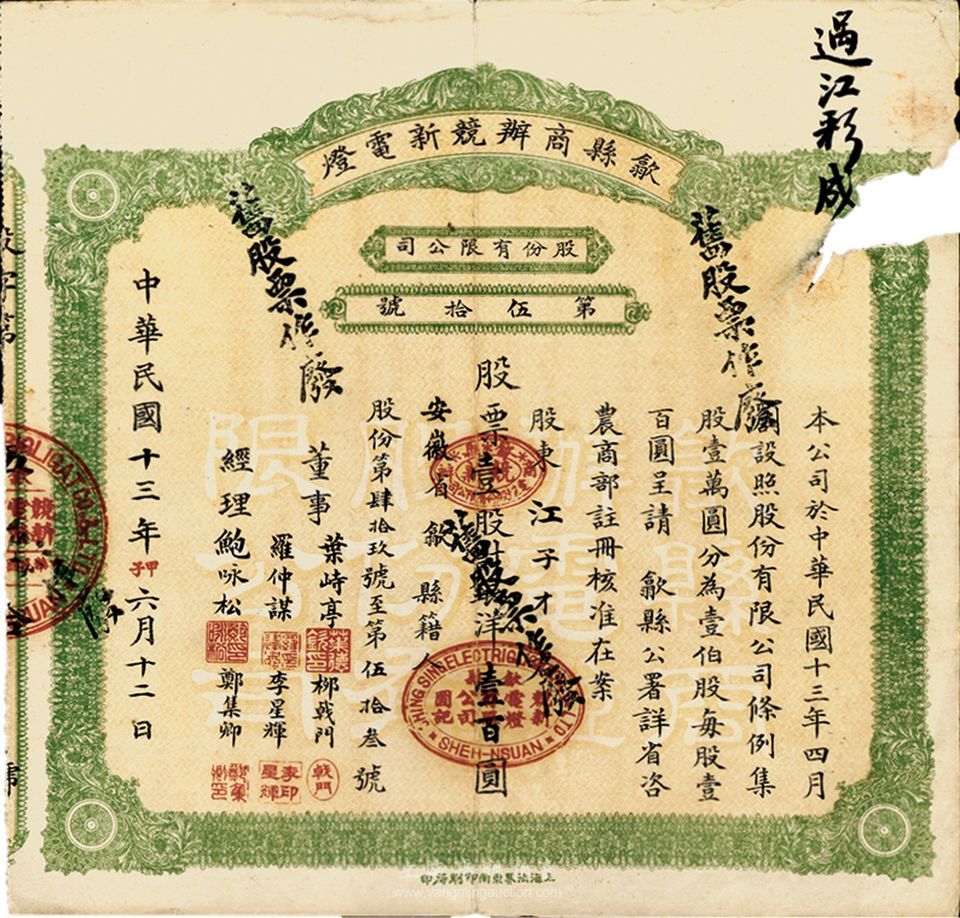 過江彩成
歙縣商辦競新電燈
股份有限公司
第伍拾號
舊股票作廢
舊股票作廢
本公司於中華民國十三年四月
設照股份有限公司條例集
股壹萬圓分為壹伯股每股壹
百圓呈請 歙縣公署詳省咨
農商部註冊核准在案
股東 江子才
股票壹股計銀洋壹百圓
安徽省歙縣籍人
股份第肆拾玖號至第伍拾叁號
舊股票作廢
董事 葉峙亭 柳戟門
羅仲謀 李星輝
經理 鮑咏松 鄭集卿
中華民國十三年甲子六月十二日
戟門
李印星輝
SHEH-HSUAN
競新
歙縣
電燈
公司
圖記
www.yangmingauction.com